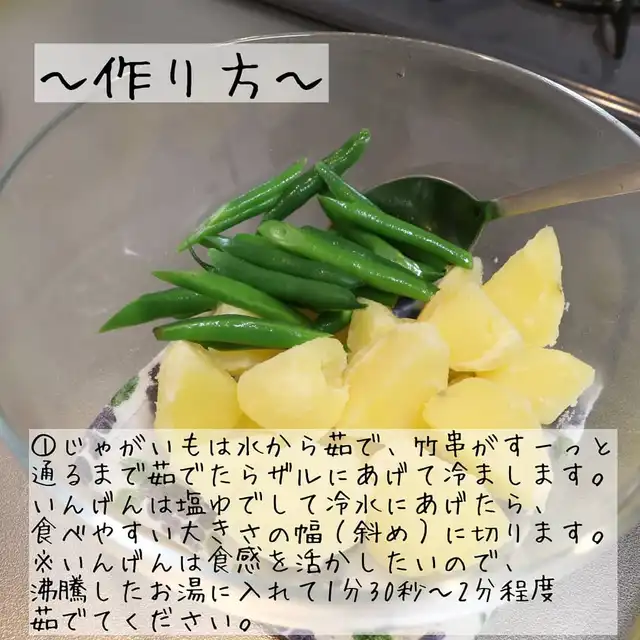 ～作り方～
①じゃがいもは水から茹で、竹串がすーっと
通るまで茹でたらザルにあげて冷まします。
いんげんは塩ゆでして冷水にあげたら、
食べやすい大きさの幅（斜め）に切ります。
※いんげんは食感を活かしたいので、
沸騰したお湯に入れて1分30秒～2分程度
茹でてください。